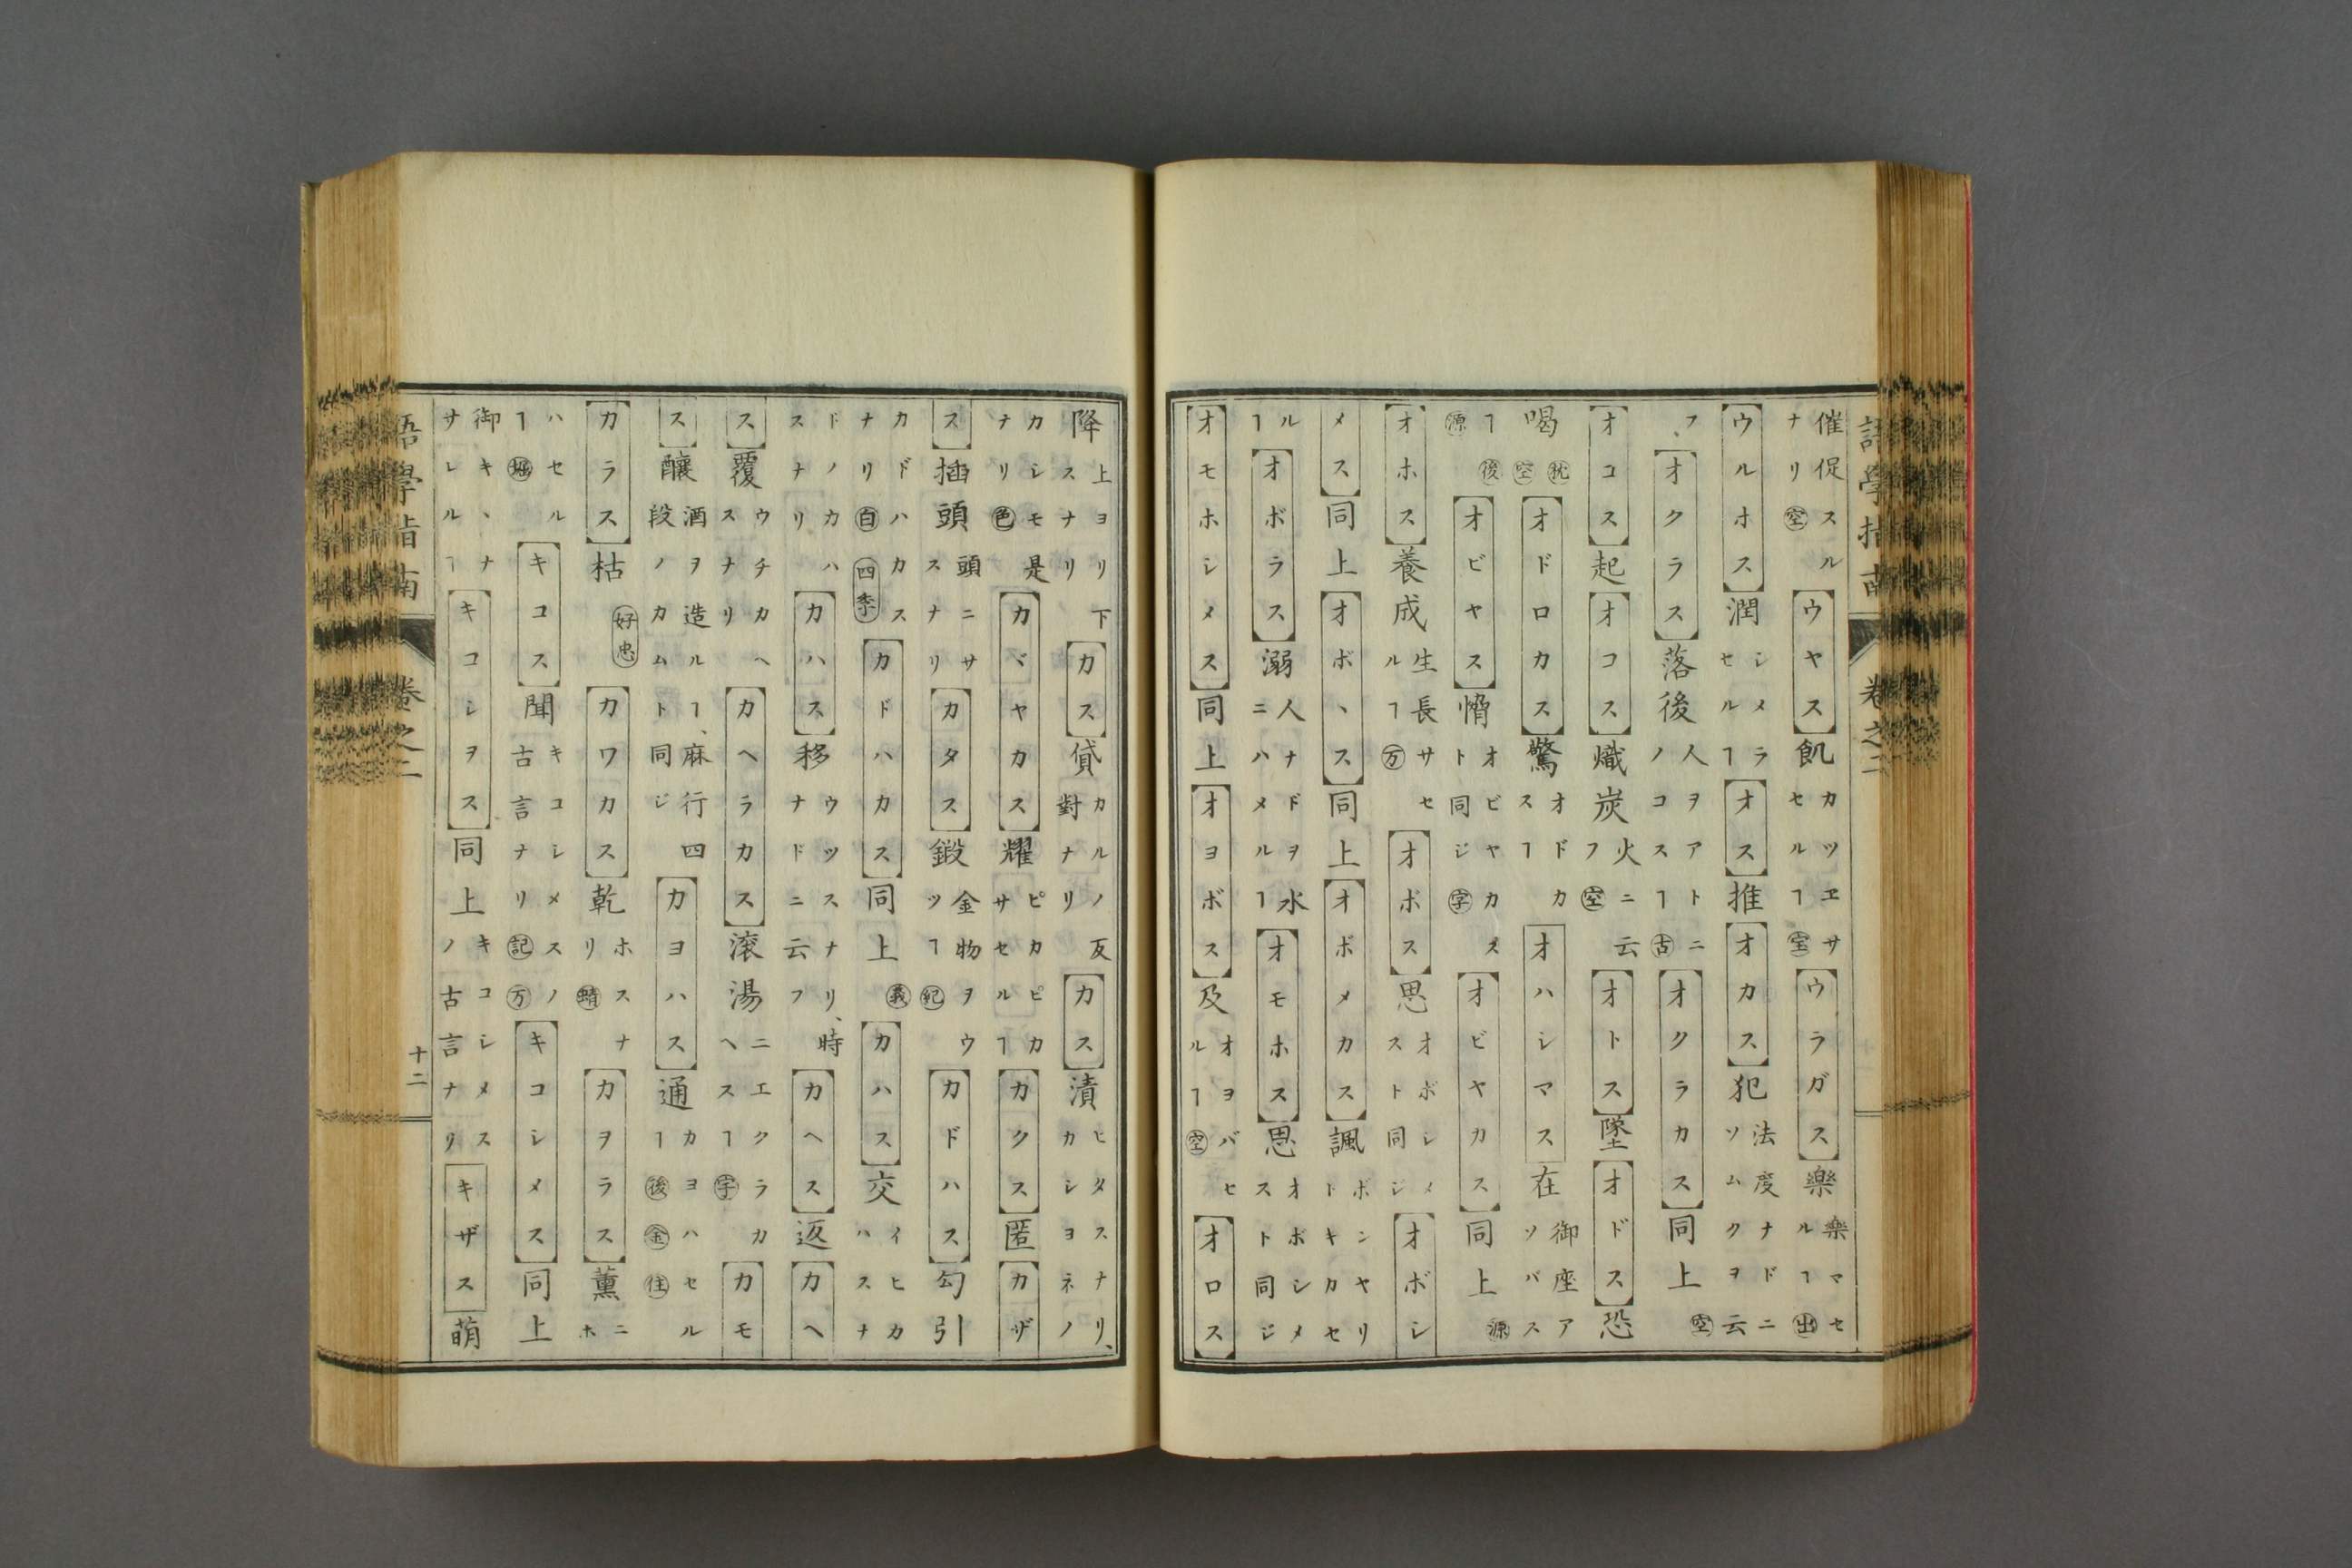 語學指南 卷之二
催促スルナリ空【ウヤス】飢カツヱサセルヿ空【ウラガス】樂樂マセルヿ出
【ウルホス】潤シメラセルヿ【オス】推【オカス】犯法度ナドニソムクヲ云
フ、【オクラス】落後人ヲアトニノコスヿ古【オクラカス】同上空
【オコス】起【オコス】熾炭火ニ云フ空【オトス】墜【オドス】恐
喝枕空【オドロカス】驚オドカスヿ【オハシマス】在御座アソバス
ヿ後源【オビヤス】愶オビヤカスト同ジ字【オビヤカス】同上源
【オホス】養成生長サセルヿ万【オボス】思オボシメスト同ジ【オボシ
メス】同上【オボヽス】同上【オボメカス】諷ボンヤリトキカセ
ルヿ【オボラス】溺人ナドヲ水ニハメルヿ【オモホス】思オボシメスト同ジ
【オモホシメス】同上【オヨボス】及オヨバセルヿ空【オロス】
降上ヨリ下スナリ【カス】貸カルノ反對ナリ【カス】漬ヒタスナリ、カシヨネノ
カシモ是ナリ色【カヾヤカス】耀ピカピカサセルヿ【カクス】匿【カザ
ス】插頭頭ニサスナリ【カタス】鍛金物ヲウツヿ紀【カドハス】勾引
カドハカスナリ白四季【カドハカス】同上義【カハス】交イヒカハスナ
ドノカハスナリ【カハス】移ウツスナリ、時ナドニ云フ【カヘス】返【カヘ
ス】覆ウチカヘスナリ【カヘラカス】滾湯ニエクラカヘスヿ字【カモ
ス】釀酒ヲ造ルヿ、麻行四段ノカムト同ジ【カヨハス】通カヨハセルヿ後金住
【カラス】枯好忠【カワカス】乾ホスナリ蜻【カヲラス】薰ニホ
ハセルヿ好【キコス】聞キコシメスノ古言ナリ記万【キコシメス】同上
御キヽナサレルヿ【キコシヲス】同上キコシメスノ古言ナリ【キザス】萌
語學指南 卷之二 十二